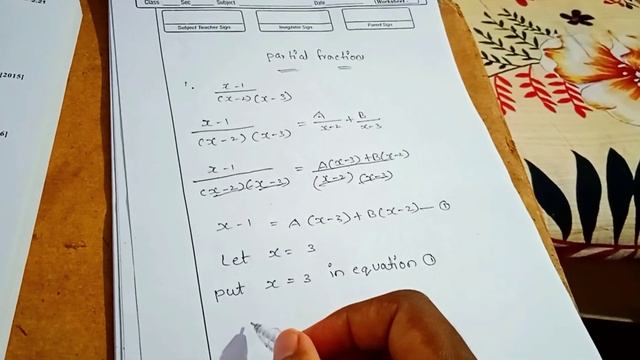 Class Sec Subject Date (Worksheet
Subject Teacher Sign Invigilator Sign Parent Sign
[2015]
6]
Partial fraction
1. x-1 / (x-2)(x-3)
x-1 / (x-2)(x-3) = A / x-2 + B / x-3
x-1 / (x-2)(x-3) = A(x-3)+B(x-2) / (x-2)(x-3)
x-1 = A(x-3)+B(x-2) — ①
Let x = 3
put x = 3 in equation ①